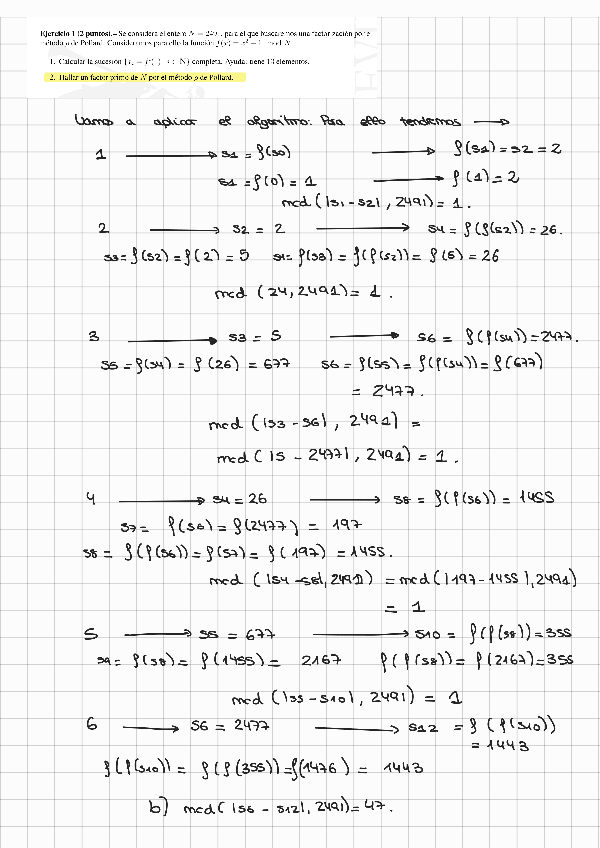 Ejercicio 1 (2 puntos).– Se considera el entero N = 2491, para el que buscaremos una factorización por el
método ρ de Pollard. Consideramos para ello la función f(x) = x² + 1 mod N.
1. Calcular la sucesión completa. Ayuda: tiene 13 elementos.
2. Hallar un factor primo de N por el método ρ de Pollard.
Vamos a aplicar el algoritmo. Para ello tendremos →
1 → s1 = f(s0) → f(s1) = s2 = 2
s1 = f(0) = 1 → f(1) = 2
mcd (|s1 - s2|, 2491) = 1.
2 → s2 = 2 → s4 = f(f(s2)) = 26.
s3 = f(s2) = f(2) = 5 s4 = f(s3) = f(f(s2)) = f(5) = 26
mcd (24, 2491) = 1.
3 → s3 = 5 → s6 = f(f(s4)) = 2477.
s5 = f(s4) = f(26) = 677 s6 = f(s5) = f(f(s4)) = f(677)
= 2477.
mcd (|s3 - s6|, 2491) =
mcd (|5 - 2477|, 2491) = 1.
4 → s4 = 26 → s8 = f(f(s6)) = 1455
s7 = f(s6) = f(2477) = 197
s8 = f(f(s6)) = f(s7) = f(197) = 1455.
mcd (|s4 - s8|, 2491) = mcd(|197 - 1455|, 2491)
= 1
5 → s5 = 677 → s10 = f(f(s8)) = 355
s9 = f(s8) = f(1455) = 2167 f(f(s8)) = f(2167) = 355
mcd (|s5 - s10|, 2491) = 1
6 → s6 = 2477 → s12 = f(f(s10))
= 1443
f(f(s10)) = f(f(355)) = f(1476) = 1443
b) mcd(|s6 - s12|, 2491) = 47.